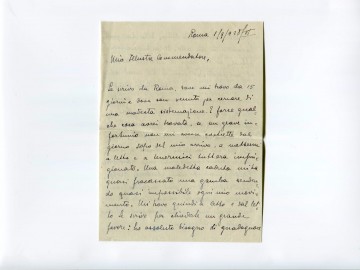 Roma 1/8/928/VI
Mio Illustre Commendatore,
Le scrivo da Roma, ove mi trovo da 15
giorni e dove son venuto per cercare di
una modesta sistemazione. E forse qual
che cosa avrei trovato, se un grave in-
fortunio non mi avesse costretto dal
giorno dopo del mio arrivo, a mettermi
a letto e a tenermici tuttora impri-
gionato. Una maledetta caduta mi ha
quasi fracassato una gamba renden
do quasi impossibile ogni mio movi-
mento. Mi trovo quindi a letto e dal let
to le scrivo per chiederle un grande
favore: ho assoluto bisogno di guadagnar